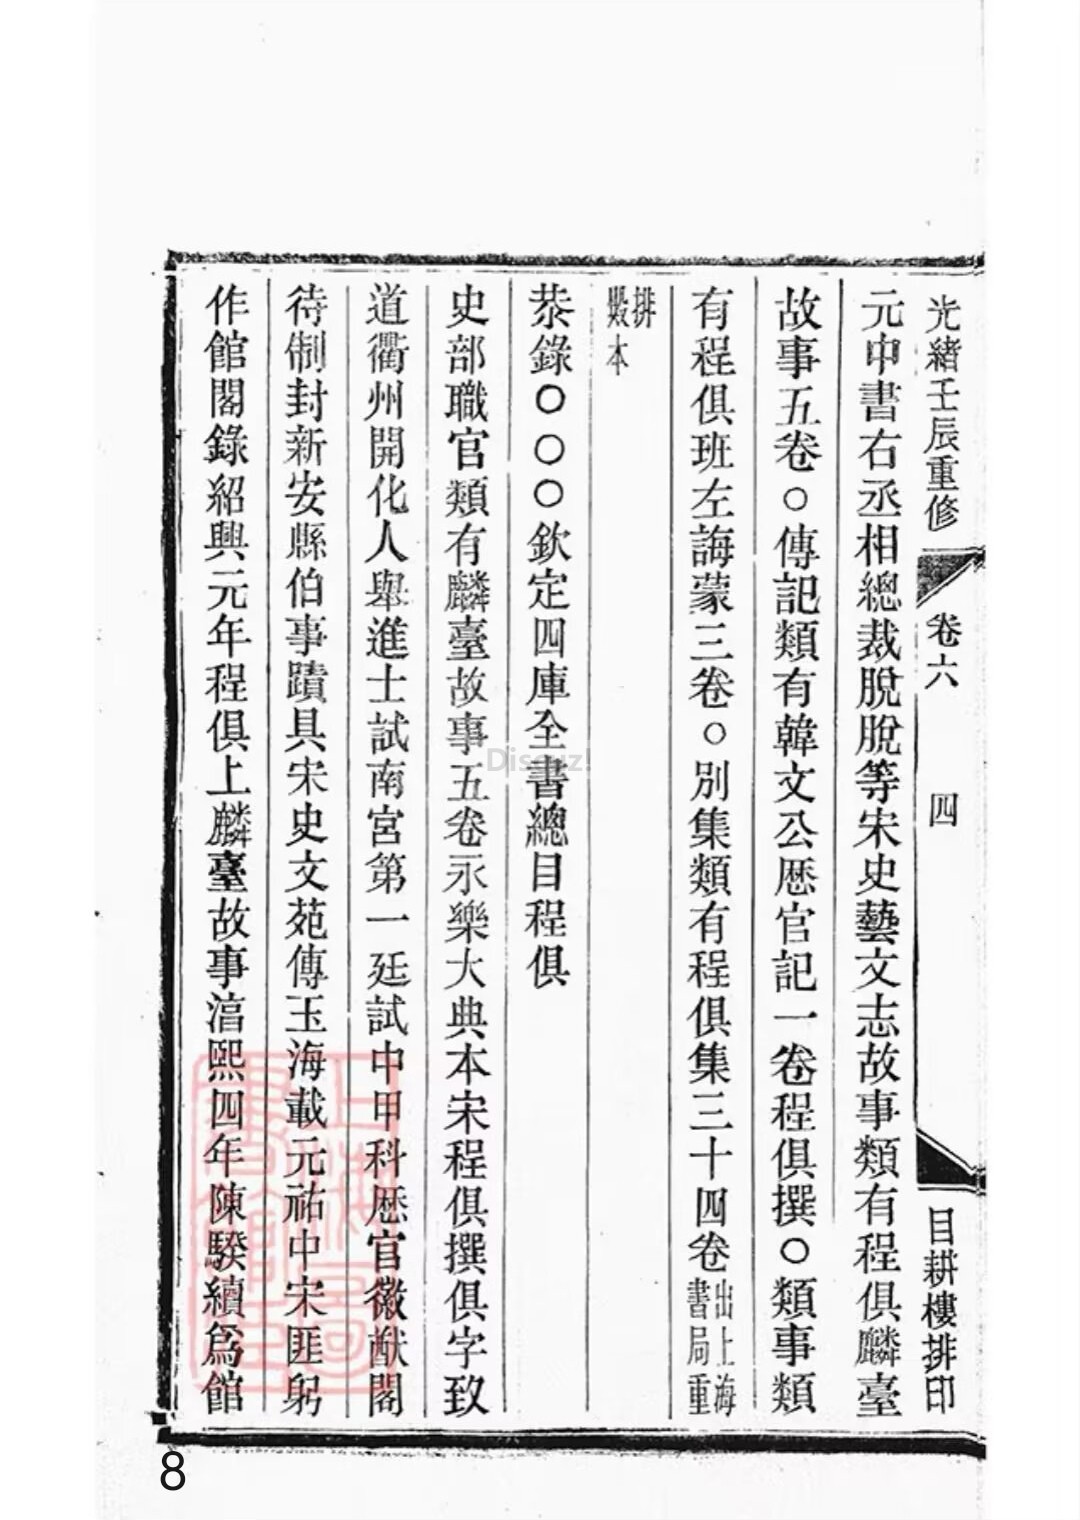 光緒壬辰重修 卷六 四 目耕樓排印
元中書右丞相總裁脫脫等宋史藝文志故事類有程俱麟臺
故事五卷○傳記類有韓文公歷官記一卷程俱撰○類事類
有程俱班左誨蒙三卷○別集類有程俱集三十四卷出上海書局重
排殿本
恭錄○○○欽定四庫全書總目程俱
史部職官類有麟臺故事五卷永樂大典本宋程俱撰俱字致
道衢州開化人舉進士試南宮第一廷試中甲科歷官徽猷閣
待制封新安縣伯事蹟具宋史文苑傳玉海載元祐中宋匪躬
作館閣錄紹興元年程俱上麟臺故事淳熙四年陳騤續爲館
8
Discuz!